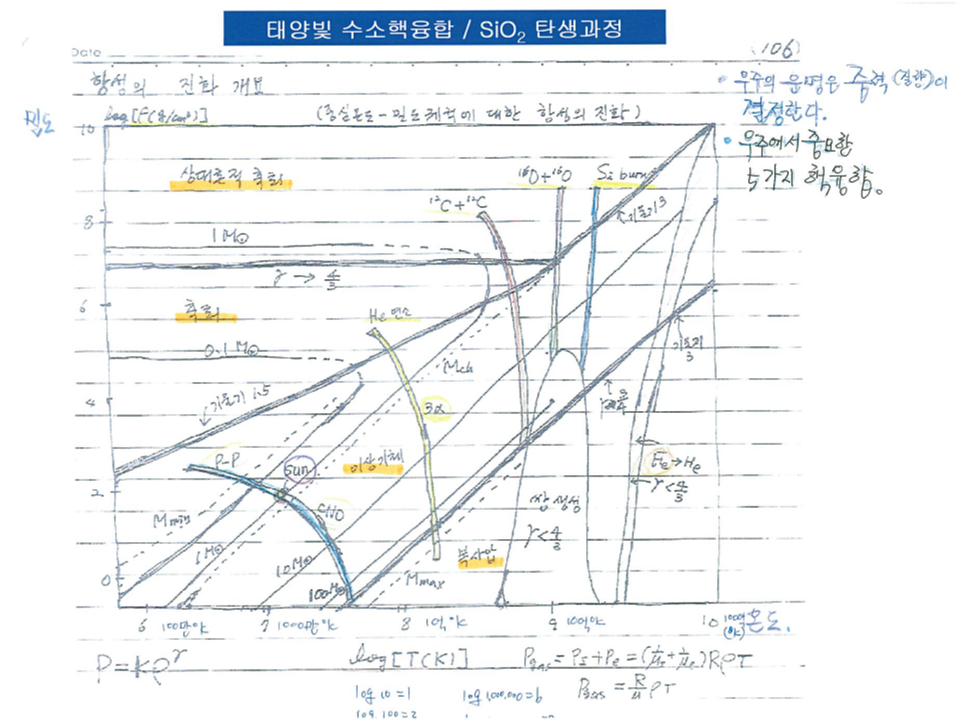 태양빛 수소핵융합 / SiO₂ 탄생과정
Date
(106)
항성의 진화 개요
• 우주의 운명은 중력(질량)이
결정한다.
• 우주에서 중요한
5가지 핵융합。
밀도
log[ρ(g/cm³)]
(중심온도-밀도궤적에 대한 항성의 진화)
10
상대론적 축퇴
¹⁶O+¹⁶O
Si burn
¹²C+¹²C
기울기3
8
1M☉
γ → 4/3
6
축퇴
He 연소
0.1M☉
Mch
기울기
3
4
기울기 1.5
3α
P-P
Sun
이상기체
Fe→He
γ<4/3
2
CNO
Mmin
쌍생성
γ<4/3
1M☉
10M☉
복사압
Mmax
100M☉
0
6 100만°K
7 1000만°K
8 1억°K
9 10억°K
10 100억(°K)
온도.
P=Kρ^γ
log[T(K)]
Pgas=Ps+Pe=(1/μ+1/μe)RρT
Pgas=R/μ ρT
log 10=1
log 1,000,000=6
log 100=2